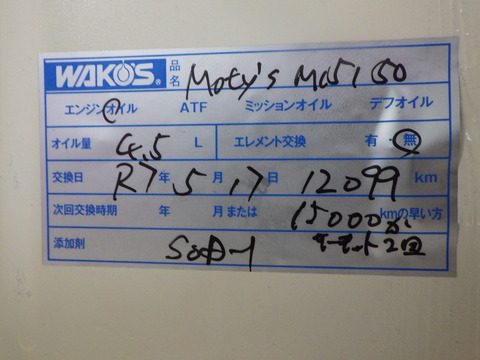 WAKO'S® 品名 Moty's M051 50
エンジンオイル ATF ミッションオイル デフオイル
オイル量 4.5 L エレメント交換 有・無
交換日 R7年 5月 17日 12099 km
次回交換時期 年 月または 15000 kmの早い方
添加剤 SOD-1 サーキット2回